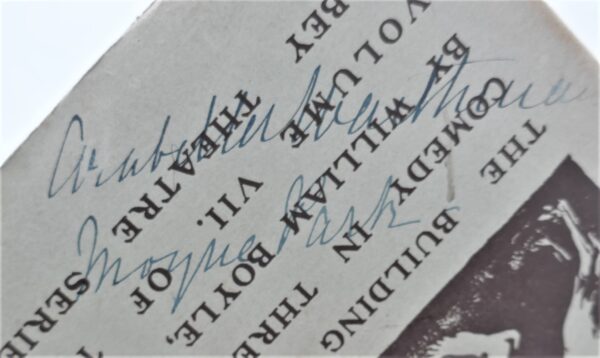 THE BUILDING
COMEDY IN THRE
BY WILLIAM BOYLE,
VOLUME VII. OF T
BEY THEATRE SERIE
Moyne Park